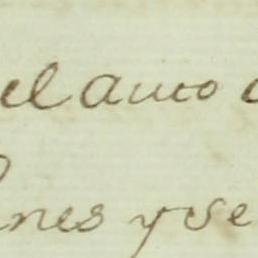 el auto
nes y se